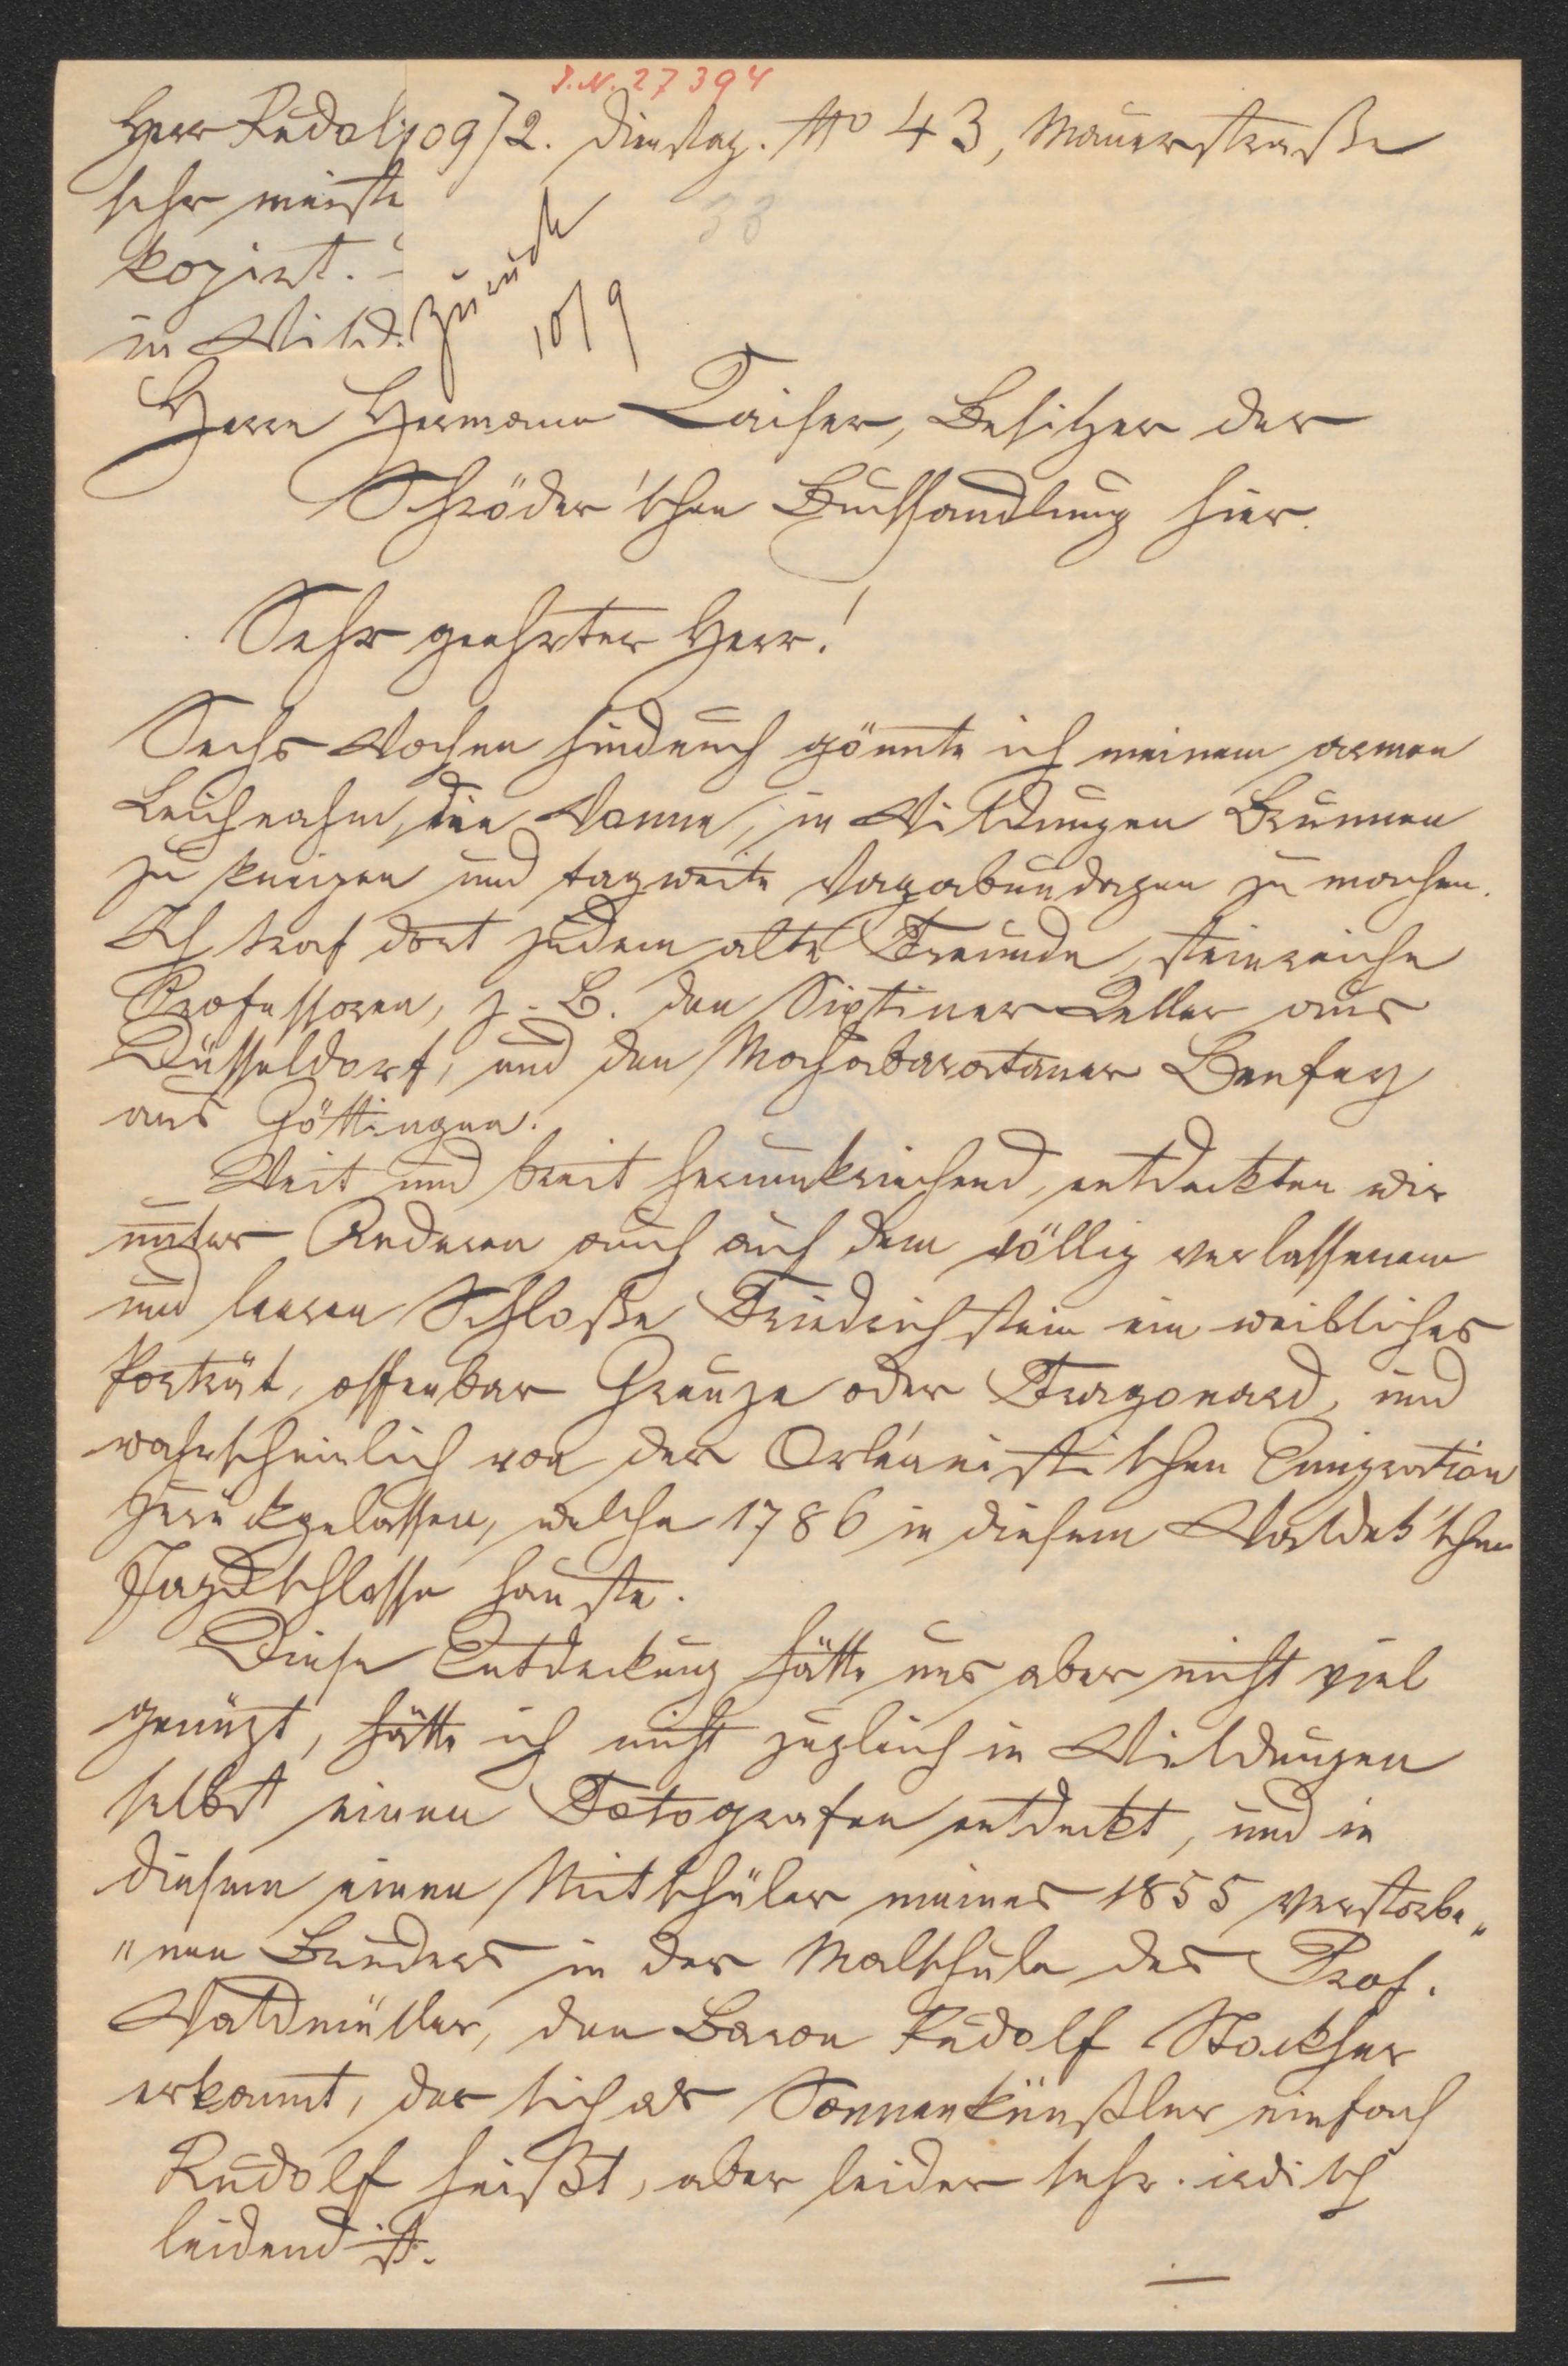 I.N. 27394
Herr Rudol
sehr meiste
kopirt.
in Wild.
09/2. Dienstag. No 43, Mauerstraße
33
zurück
10/9
Herrn Hermann Kaiser, Besitzer der
Schröder'schen Buchhandlung hier.
Sehr geehrter Herr!
Sechs Wochen hindurch gönnte ich meinem armen
Leichnahm, die Wonne, in Wildungen Brunnen
zu kneipen und tagweite Vagabundagen zu machen.
Ich traf dort zudem alte Freunde, steinreiche
Professoren, z. B. den Sixtiner Keller aus
Düsseldorf, und den Mahabarataner Benfey
aus Göttingen.
Weit und breit herumkriechend, entdeckten wir
unter Anderen auch auf dem völlig verlassenem
und leeren Schloße Friedrichstein ein weibliches
Porträt, offenbar Greuze oder Fragonard, und
wahrscheinlich von der Orléanistischen Emigration
zurückgelassen, welche 1786 in diesem Waldek'schen
Jagdschlosse hauste.
Diese Entdeckung hätte uns aber nicht viel
genüzt, hätte ich nicht zugleich in Wildungen
selbst einen Fotografen entdeckt, und in
diesem einen Mitschüler meines 1855 verstorbe„
„nen Bruders in der Malschule des Prof.
Waldmüller, den Baron Rudolf Stockher
erkannt, der sich als Sonnenkünstler einfach
Rudolf heißt, aber leider sehr irdisch
leidend ist.